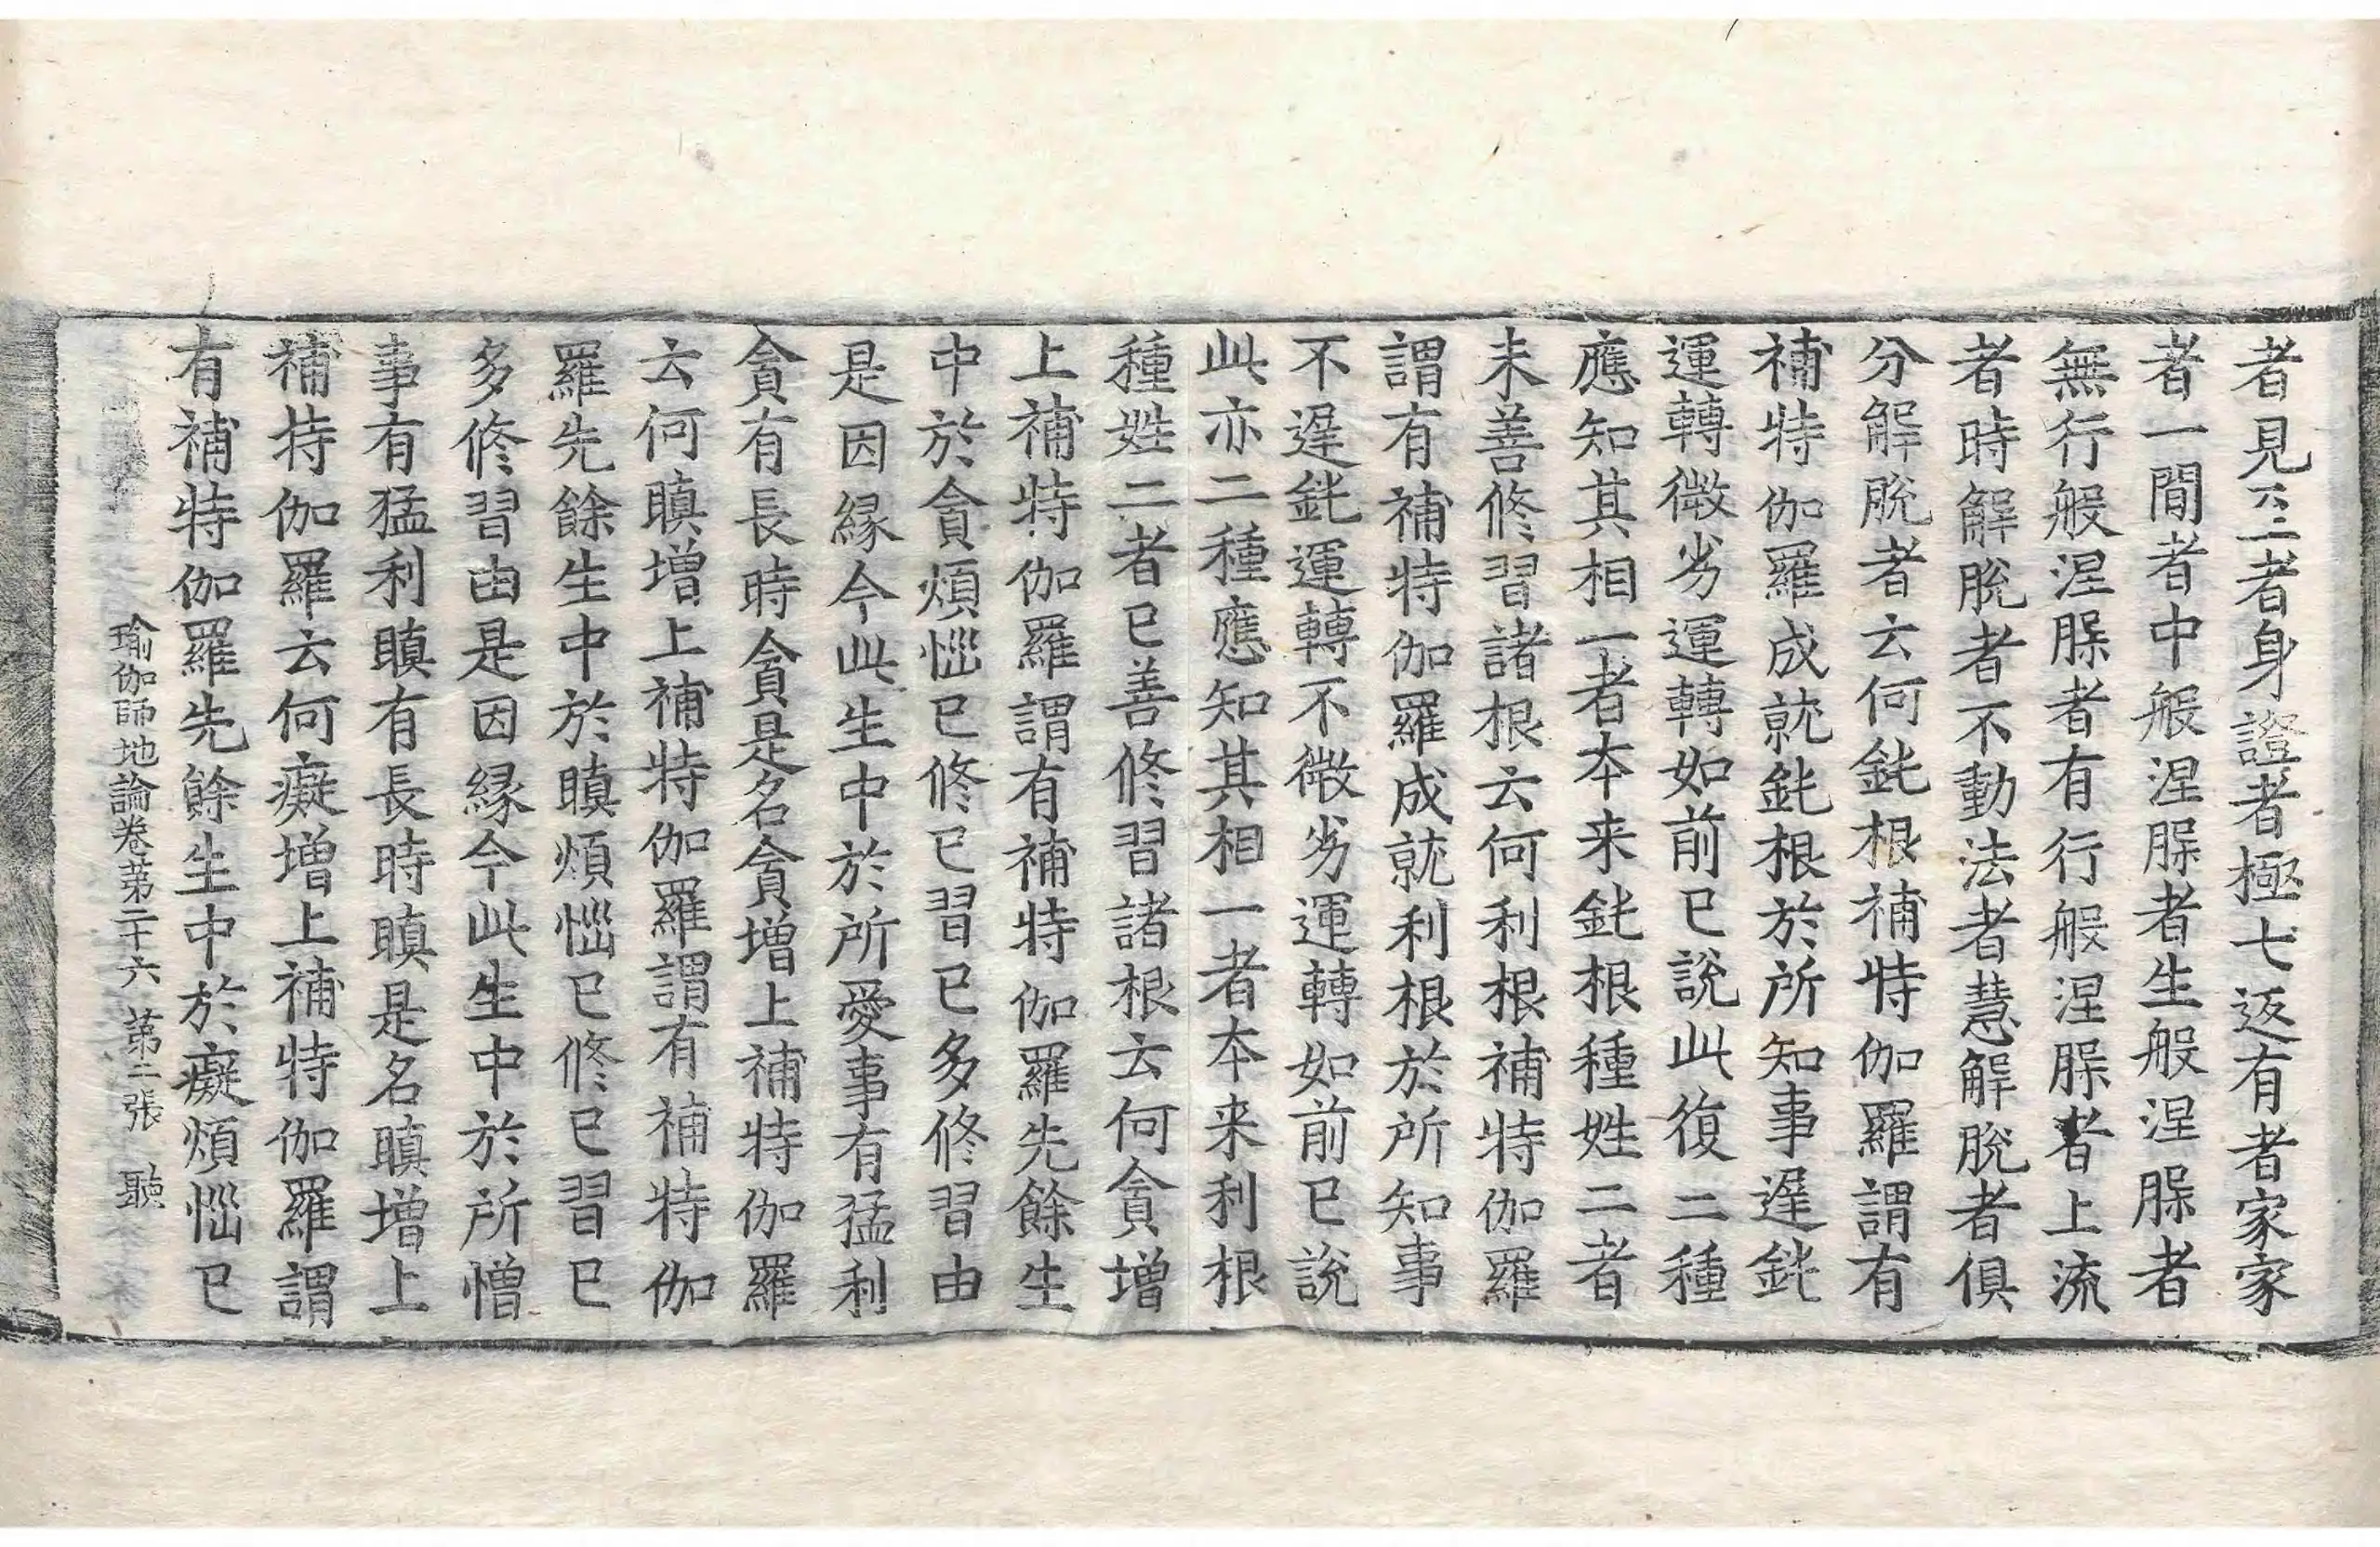 者見至者身證者極七返有者家家
者一間者中般涅槃者生般涅槃者
無行般涅槃者有行般涅槃者上流
者時解脫者不動法者慧解脫者俱
分解脫者云何鈍根補特伽羅謂有
補特伽羅成就鈍根於所知事遲鈍
運轉微劣運轉如前已說此復二種
應知其相一者本来鈍根種姓二者
未善修習諸根云何利根補特伽羅
謂有補特伽羅成就利根於所知事
不遲鈍運轉不微劣運轉如前已說
此亦二種應知其相一者本来利根
種姓二者已善修習諸根云何貪增
上補特伽羅謂有補特伽羅先餘生
中於貪煩惱已修已習已多修習由
是因緣今此生中於所愛事有猛利
貪有長時貪是名貪增上補特伽羅
云何瞋增上補特伽羅謂有補特伽
羅先餘生中於瞋煩惱已修已習已
多修習由是因緣今此生中於所憎
事有猛利瞋有長時瞋是名瞋增上
補特伽羅云何癡增上補特伽羅謂
有補特伽羅先餘生中於癡煩惱已
瑜伽師地論卷第二十六 第二張 聽